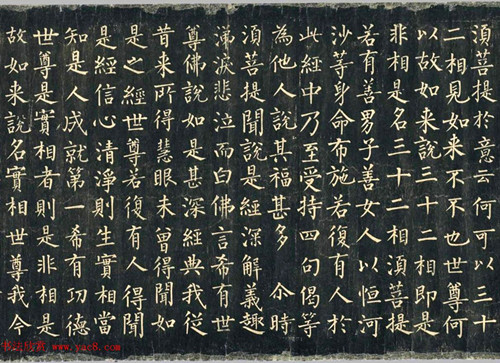 須菩提於意云何可以三十
二相見如来不不也世尊何
以故如来說三十二相即是
非相是名三十二相須菩提
若有善男子善女人以恒河
沙等身命布施若復有人於
此經中乃至受持四句偈等
為他人說其福甚多 尒時
須菩提聞說是經深解義趣
涕淚悲泣而白佛言希有世
尊佛說如是甚深經典我從
昔来所得慧眼未曾得聞如
是之經世尊若復有人得聞
是經信心清淨則生實相當
知是人成就第一希有功德
世尊是實相者則是非相是
故如来說名實相世尊我今
www.yac8.com